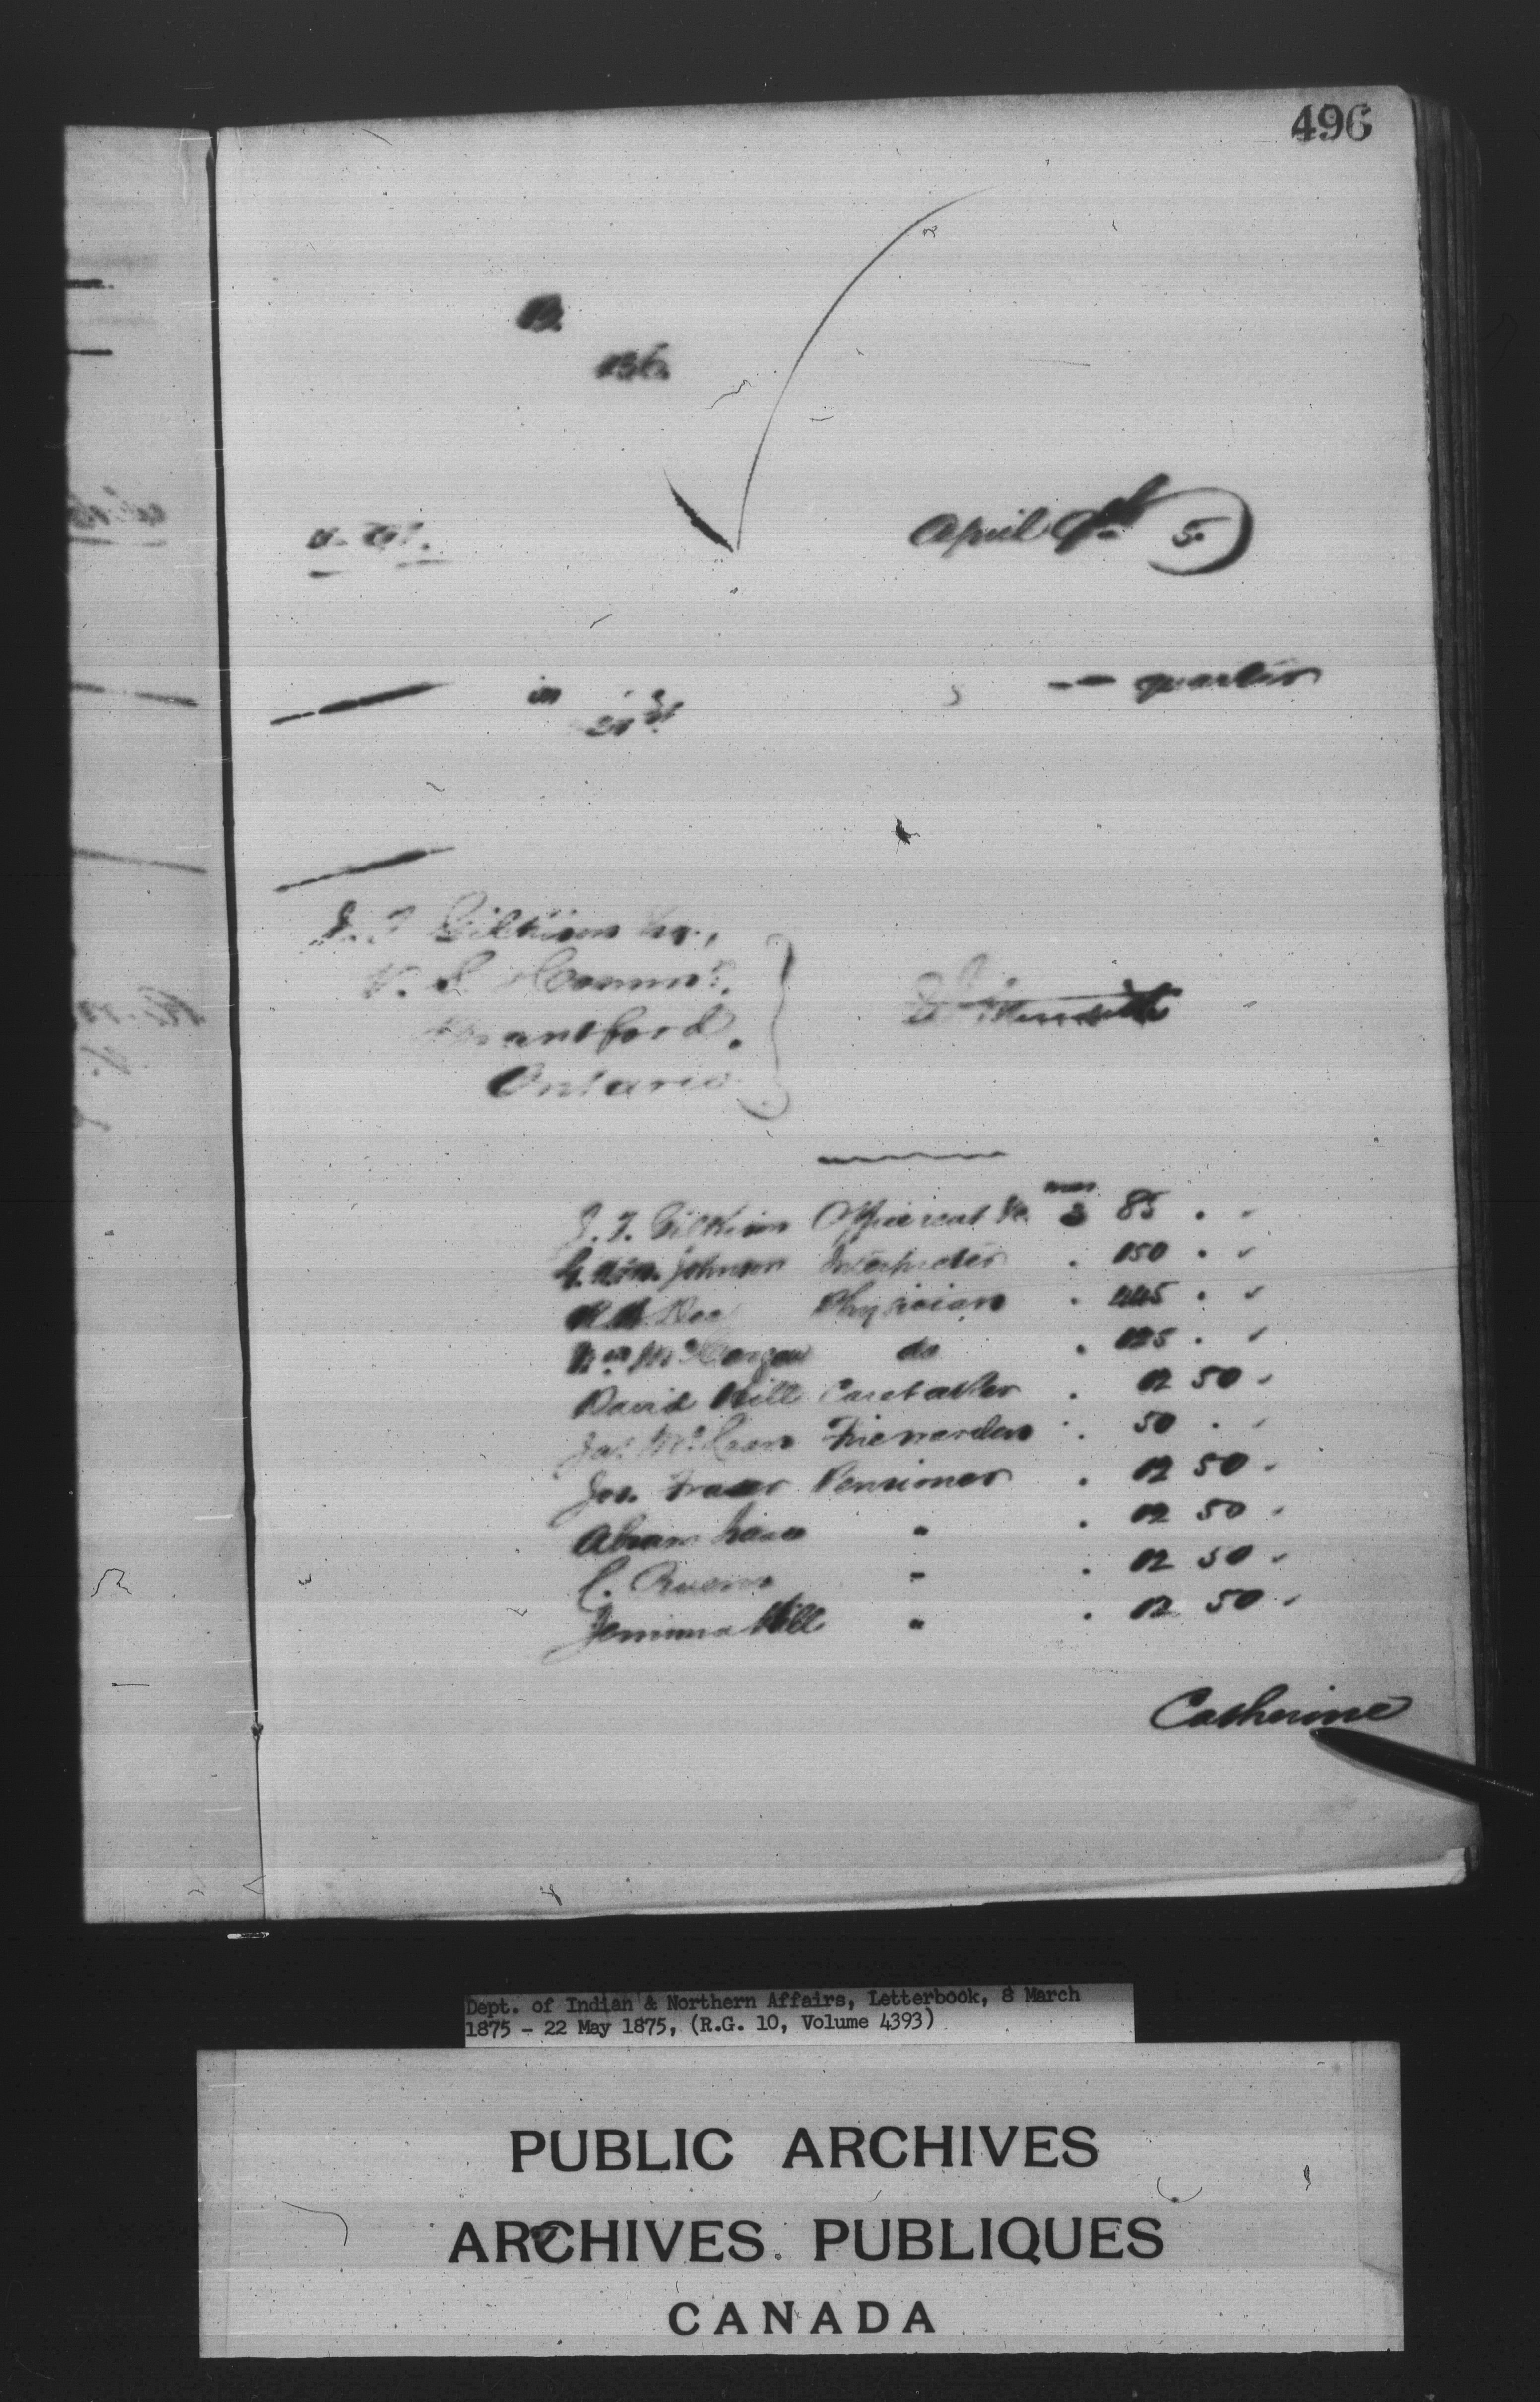 496
B.
136.
April 9th 5.
in quarter
31st
J. T. Gilkison Esq.,
V. S. & Commr.,
Brantford.
Ontario
J. T. Gilkison Office rent &c. $ 85 . .
G. H. M. Johnson Interpreter . 150 . .
R. H. Dee Physician . 445 . .
Wm McCargow do . 125 . .
David Hill Caretaker . 12 50
Jas McLean Firewarden . 50 . .
Jos. Fraser Pensioner . 12 50
Abram Isaac " . 12 50
C. " . 12 50
Jemima Hill " . 12 50
Catherine
Dept. of Indian & Northern Affairs, Letterbook, 8 March
1875 - 22 May 1875, (R.G. 10, Volume 4393)
PUBLIC ARCHIVES
ARCHIVES PUBLIQUES
CANADA